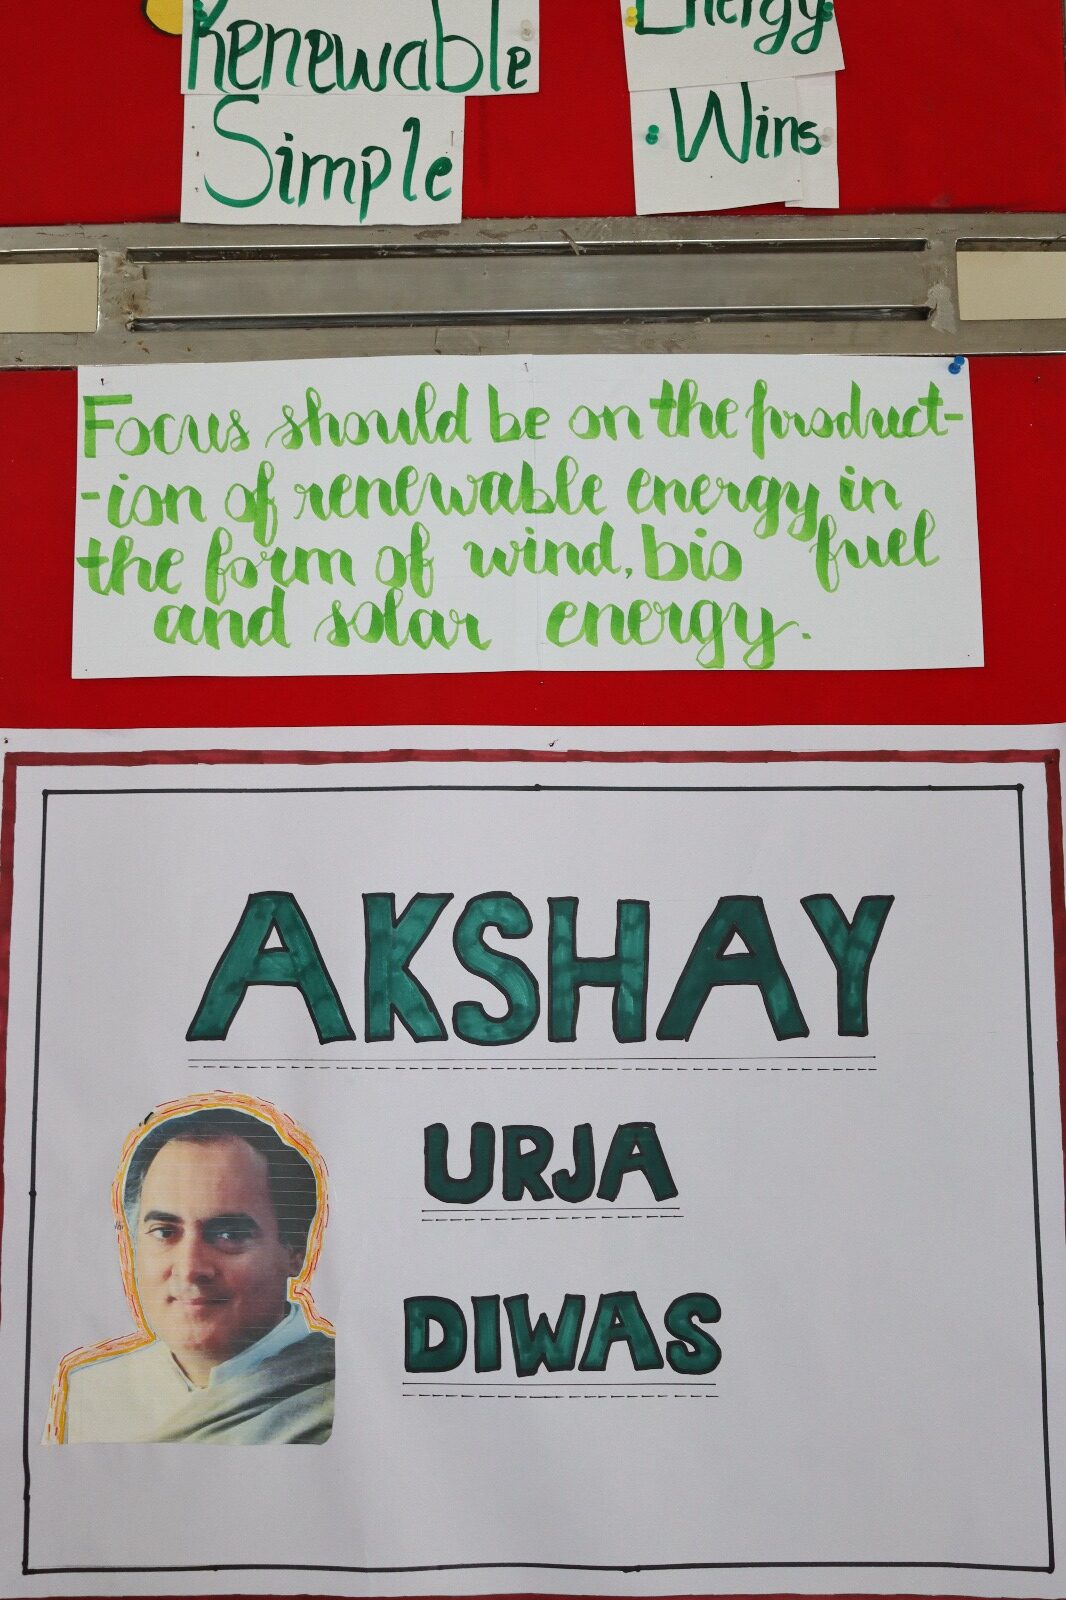 Renewable Energy
Simple Wins
Focus should be on the product-
-ion of renewable energy in
the form of wind, bio fuel
and solar energy.
AKSHAY
URJA
DIWAS